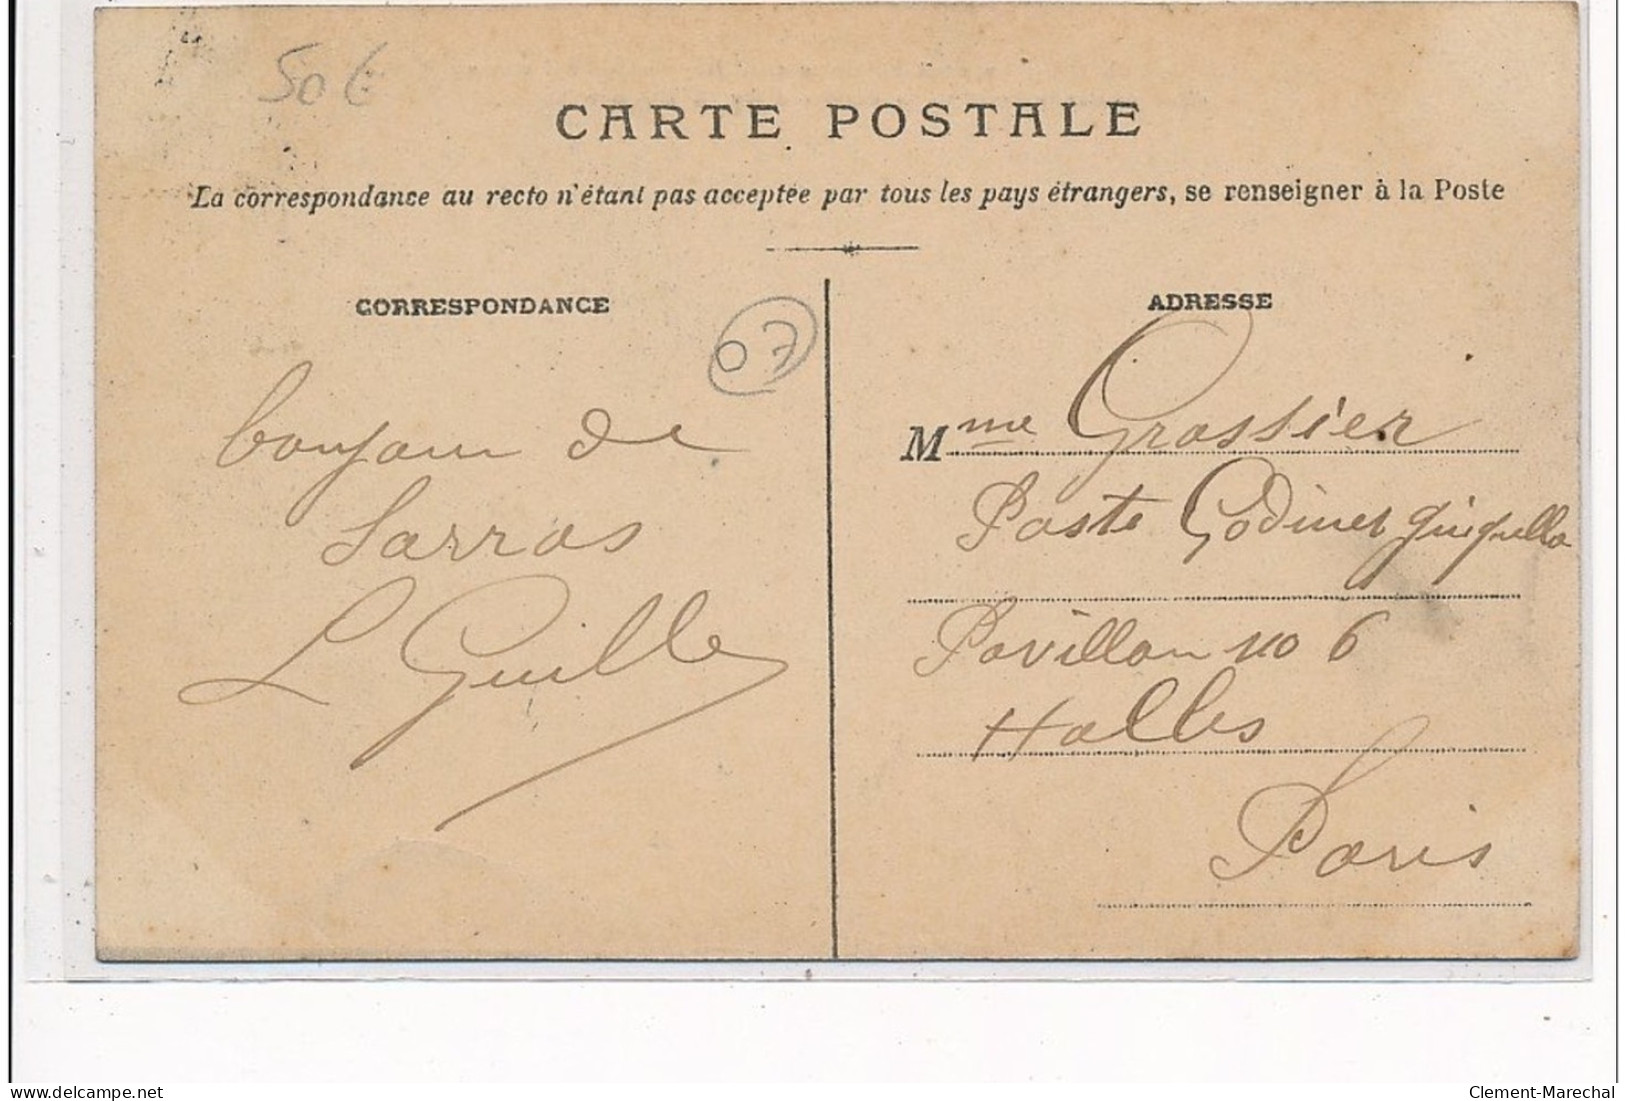 50 €
CARTE POSTALE
La correspondance au recto n'étant pas acceptée par tous les pays étrangers, se renseigner à la Poste
CORRESPONDANCE
07
bonjour de
Sarras
L Guille
ADRESSE
Mme Grossier
Poste Godinet
Pavillon no 6
Halles
Paris
delcampe.net
Clement-Marechal